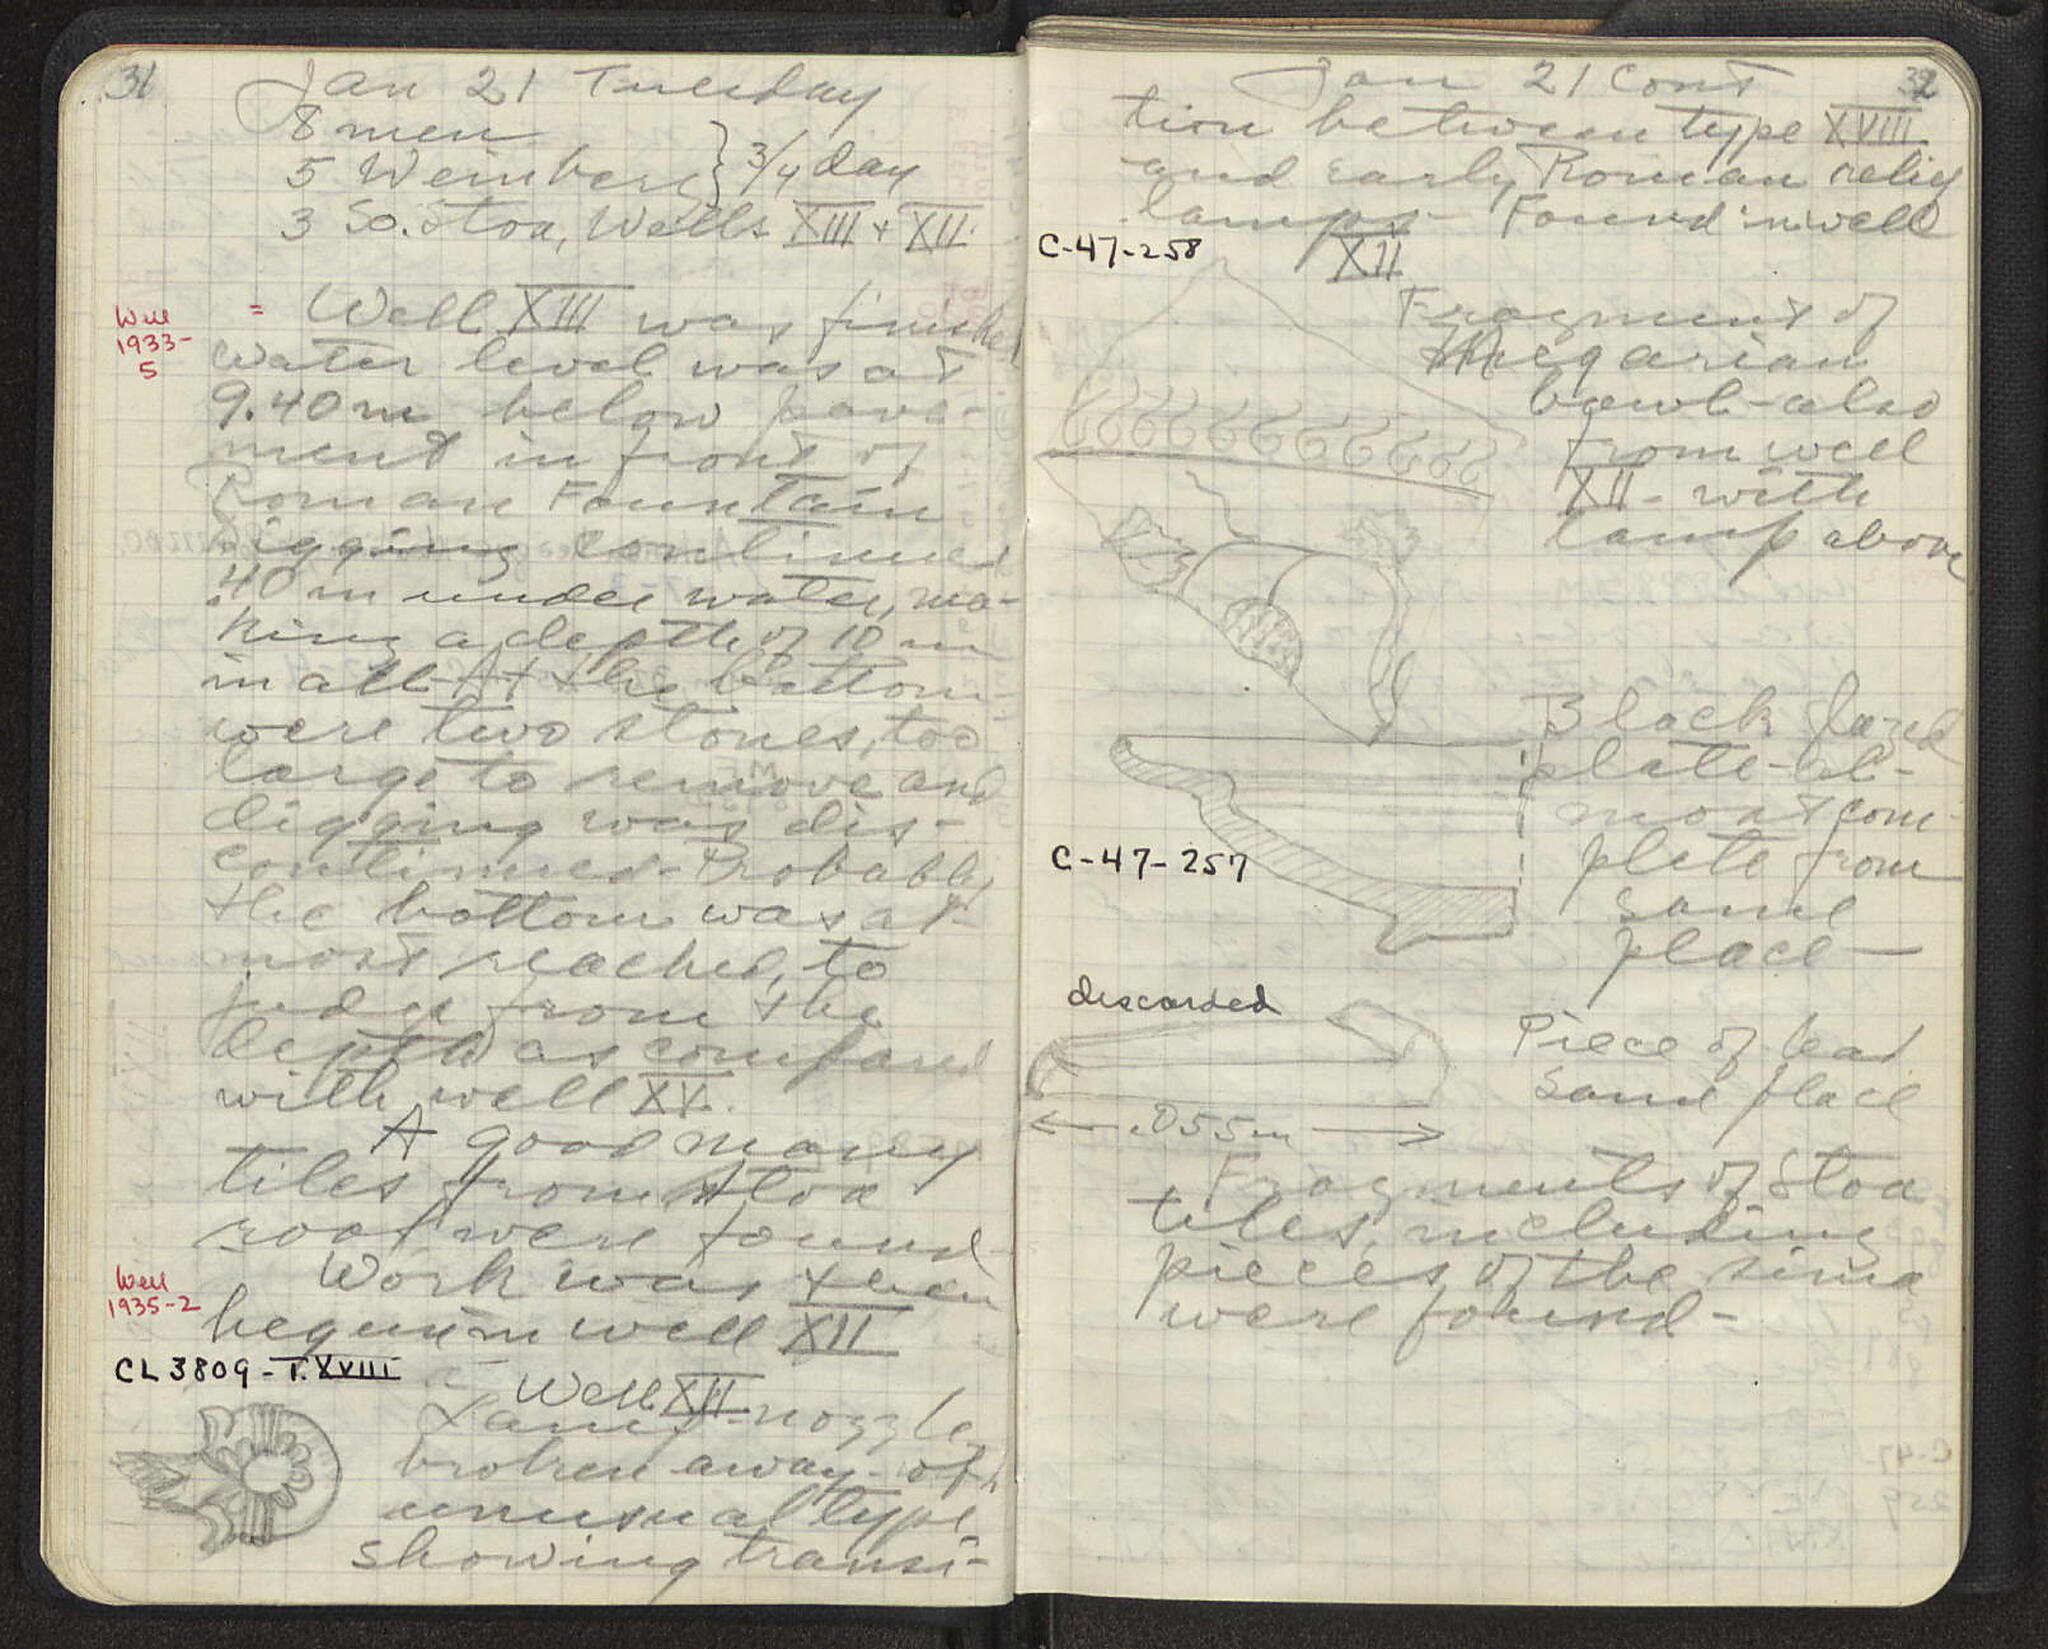 31
Jan 21 Tuesday
8 men
5 Weinberg } 3/4 day
3 So. Stoa, Wells XIII + XII
Well
1933-
5
= Well XIII was finished
water level was at
9.40 m below pave-
ment in front of
Roman Fountain
Digging continued
.40 m under water, ma-
king a depth of 10 m
in all - At the bottom
were two stones, too
large to remove and
digging was dis-
continued - Probably
the bottom was al-
most reached, to
judge from the
depth as compared
with well XV.
A good many
tiles from Stoa
roof were found -
Work was then
begun in well XII
Well
1935-2
CL 3809 - T. XVIII
Well XII
Lamp - nozzle
broken away - of
unusual type
showing transi-
32
Jan 21 Cont
tion between type XVIII
and early Roman relief
lamps - Found in well
XII
C-47-258
Fragment of
Megarian
bowl - also
from well
XII - with
lamp above
Black glazed
plate - al-
most com-
plete from
same
place -
C-47-257
discarded
Piece of lead
same place
.055m
Fragments of Stoa
tiles, including
pieces of the sima
were found -